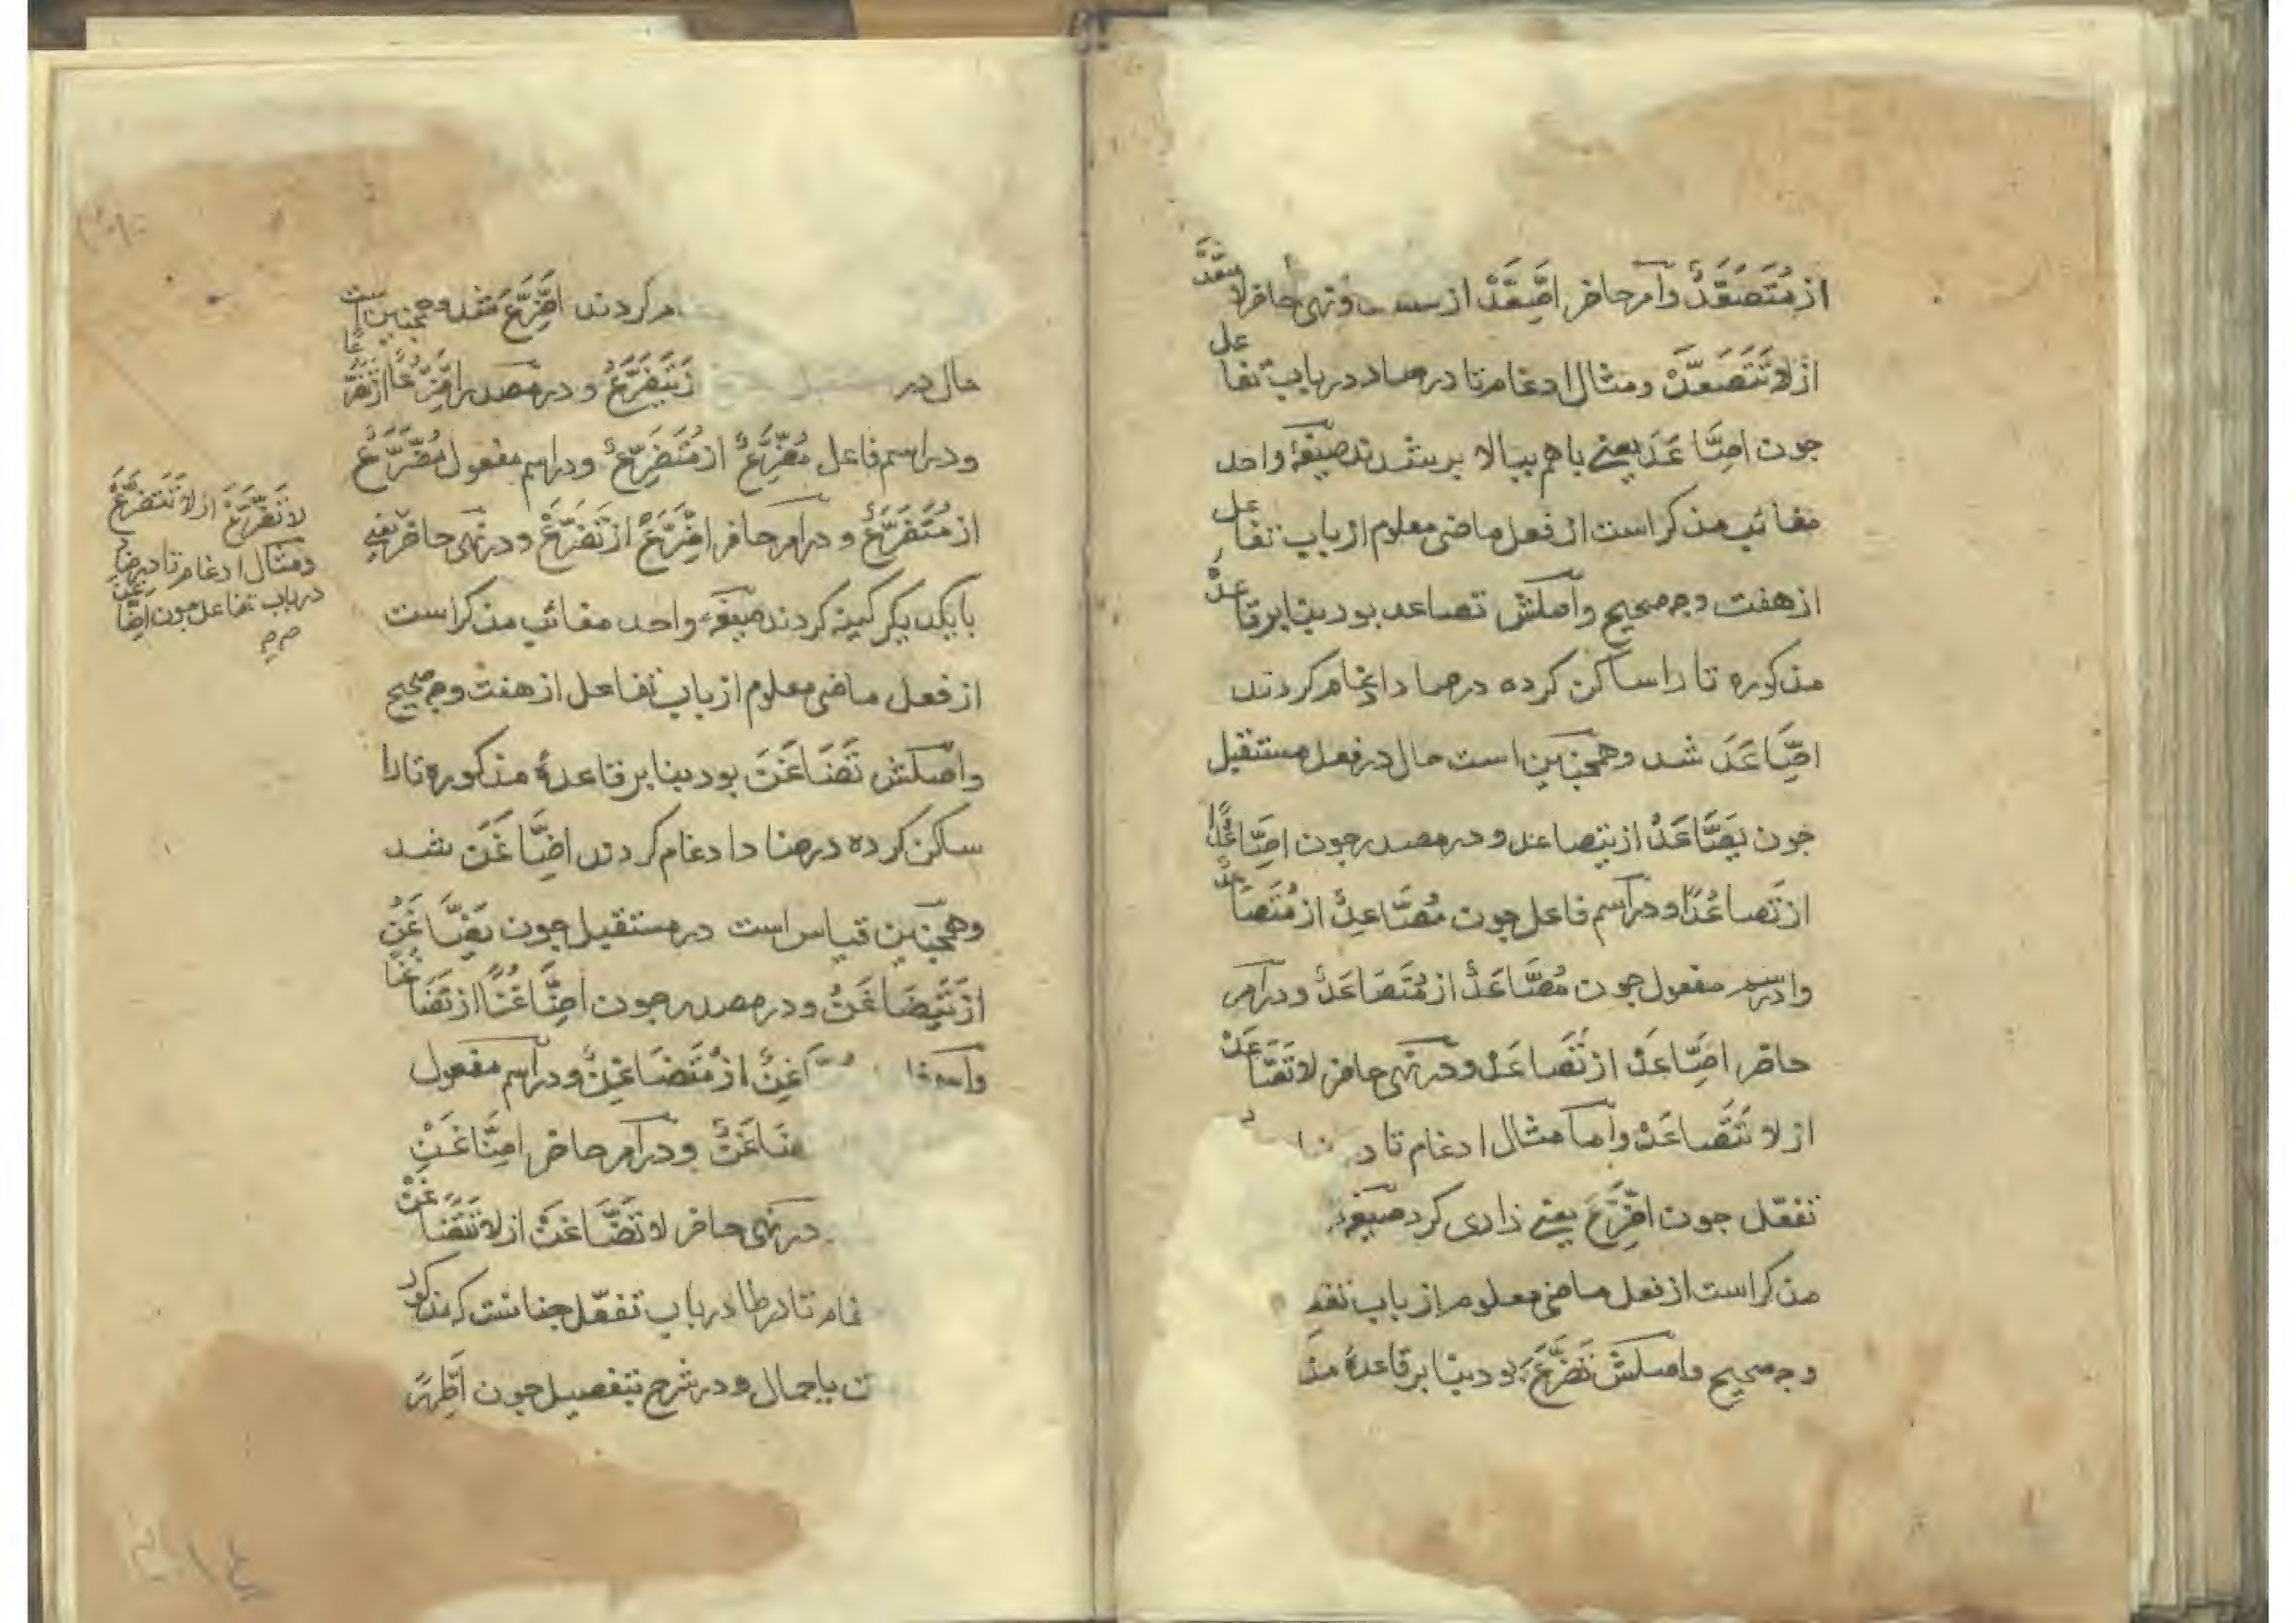 از مُتَصَعَّدٌ وامر حاضر اِصَّعَّدْ از ونهی حاضر لا تصَّعَّدْ
از لا تَتَصَعَّدْ ومثال ادغام تا در صاد در باب تفاعل
جون اِصَّاعَدَ یعنی باهم ببالا بر شدند صیغهٔ واحد
مغائب مذکر است از فعل ماضی معلوم از باب تفاعل
از هفت وجه صحیح واصلش تصاعد بود بنا بر قاعدهٔ
مذکوره تا را ساکن کرده در صاد ادغام کردند
اِصَّاعَدَ شد وهمچنین است حال در فعل مستقبل
جون یَصَّاعَدُ از یتصاعد و در مصدر جون اِصَّاعُدًا
از تَصاعُدًا و در اسم فاعل جون مُصَّاعِدٌ از مُتَصَاعِدٌ
و در اسم مفعول جون مُصَّاعَدٌ از مُتَصَاعَدٌ و در امر
حاضر اِصَّاعَدْ از تَصَاعَدْ و در نهی حاضر لا تَصَّاعَدْ
از لا تَتَصَاعَدْ واما مثال ادغام تا در
تفعّل جون اِضَّرَّعَ یعنی زاری کرد صیغهٔ
مذکر است از فعل ماضی معلوم از باب تفع
وجه صحیح واصلش تَضَرَّعَ بود بنا بر قاعدهٔ مذ
ام کردند اِضَّرَّعَ شد وهمچنین است
حال در یَتَضَرَّعُ و در مصدر اِضَّرُّعًا از تَضَرُّعًا
و در اسم فاعل مُضَّرِّعٌ از مُتَضَرِّعٌ و در اسم مفعول مُضَّرَّعٌ
از مُتَضَرَّعٌ و در امر حاضر اِضَّرَّعْ از تَضَرَّعْ و در نهی حاضر یعنی
با یکدیکر کینه کردند صیغهٔ واحد مغائب مذکر است
از فعل ماضی معلوم از باب تفاعل از هفت وجه صحیح
واصلش تَضَاغَنَ بود بنا بر قاعدهٔ مذکوره تا را
ساکن کرده در ضاد ادغام کردند اِضَّاغَنَ شد
وهمچنین قیاس است در مستقبل جون یَضَّاغَنُ
از یَتَضَاغَنُ و در مصدر جون اِضَّاغُنًا از تَضَاغُنًا
واسم فا غِنٌ از مُتَضَاغِنٌ و در اسم مفعول
ضَاغَنٌ و در امر حاضر اِضَّاغَنْ
در نهی حاضر لا تَضَّاغَنْ از لا تَتَضَاغَنْ
غام تا در طا در باب تفعّل جنانست که مذکور
ت باجمال و در شرح بتفصیل جون اِطَّهَّرَ
لا تَضَّرَّعْ از لا تَتَضَرَّعْ
ومثال ادغام تا در ضاد
در باب تفاعل جون اِضَّاغَنَ